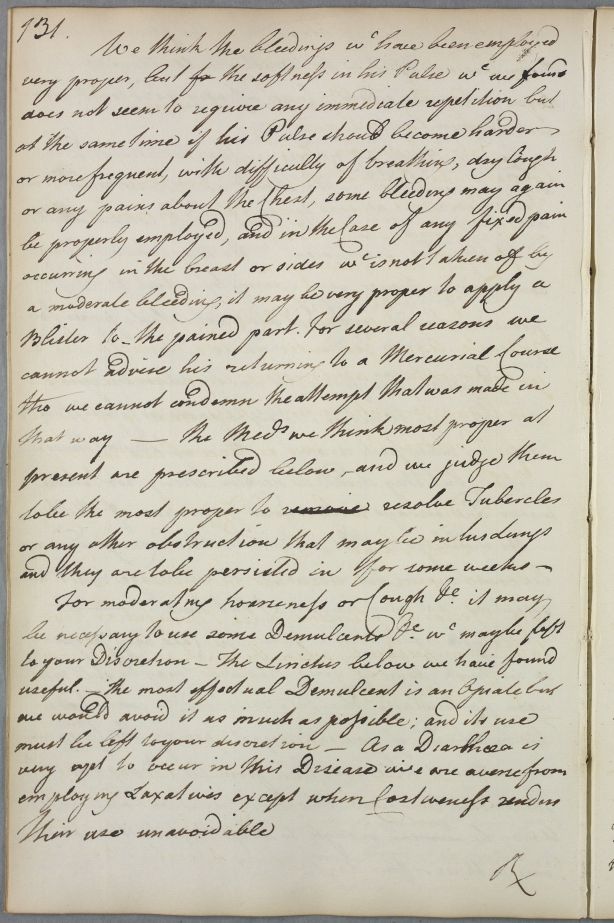 131.
We think the bleedings wc have been employed
very proper, but the softness in his Pulse wc we found
does not seem to require any immediate repetition but
at the same time if his Pulse should become harder
or more frequent, with difficulty of breathing, dry Cough
or any pains about the Chest, some bleeding may again
be properly employed, and in the Case of any fixed pain
occurring in the breast or sides wc is not taken off by
a moderate bleeding, it may be very proper to apply a
Blister to the pained part. For several reasons we
cannot advise his returning to a Mercurial Course
tho we cannot condemn the attempt that was made in
that way — The Meds we think most proper at
present are prescribed below, and we judge them
to be the most proper to resolve Tubercles
or any other obstruction that may be in his Lungs
and they are to be persisted in for some weeks —
For moderating hoarseness or Cough &c it may
be necessary to use some Demulcents &c wc may be left
to your Discretion — The Linctus below we have found
useful. — The most effectual Demulcent is an Opiate, but
we would avoid it as much as possible; and its use
must be left to your discretion — As a Diarrhœa is
very apt to occur in this Disease we are averse from
employing Laxatives except when Costiveness renders
their use unavoidable
℞